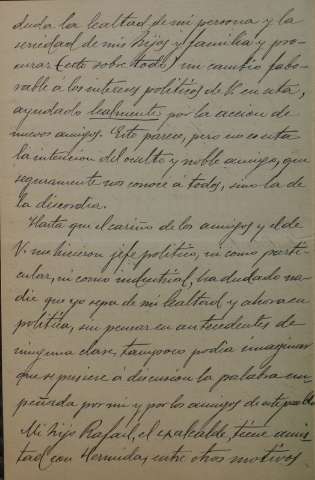 duda la lealtad de mi persona y la
seriedad de mis hijos y familia y pro-
curar (esto sobre todo) un cambio favo-
rable á los intereses políticos de V. en esta,
ayudado lealmente por la acción de
nuevos amigos. Esto parece, pero no es esta
la intencion del oculto y noble amigo, que
seguramente nos conoce á todos, sino la de
la discordia.
Hasta que el cariño de los amigos y el de
V. me hicieron jefe político, ni como parti-
cular, ni como industrial, ha dudado na-
die que yo sepa de mi lealtad y ahora en
política, sin pensar en antecedentes de
ninguna clase, tampoco podía imaginar
que se pusiese á discusion la palabra em-
peñada por mi y por los amigos de este pueblo
Mi hijo Rafael, el exalcalde, tiene amis-
tad con Bermudez, entre otros motivos